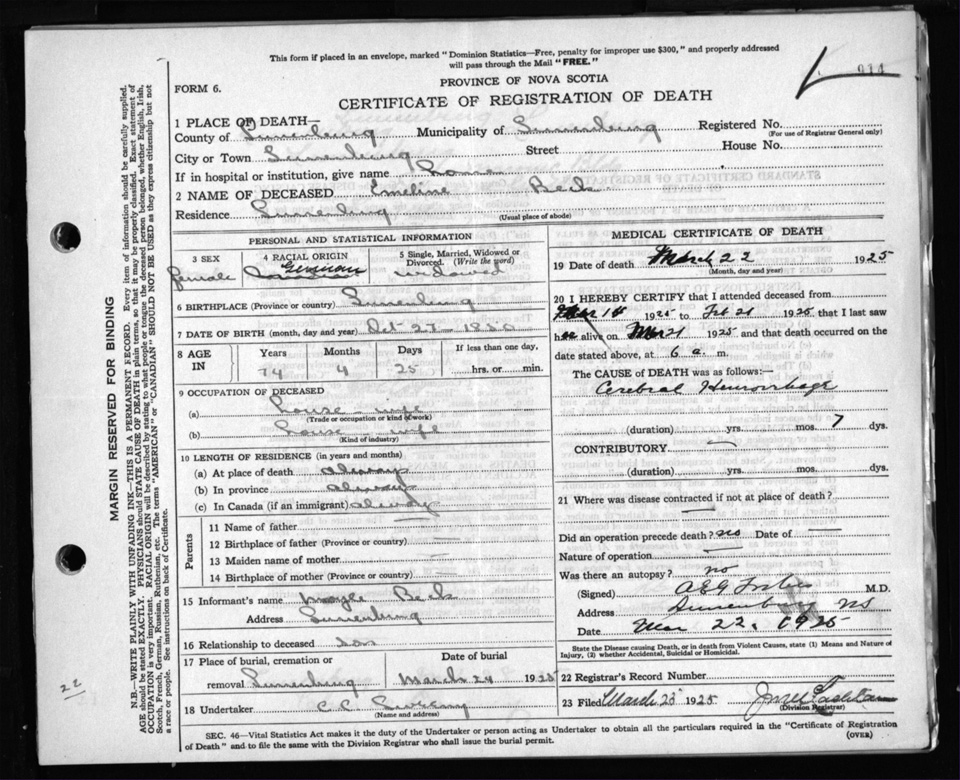 This form if placed in an envelope, marked "Dominion Statistics—Free, penalty for improper use $300," and properly addressed
will pass through the Mail "FREE."
PROVINCE OF NOVA SCOTIA
FORM 6.
CERTIFICATE OF REGISTRATION OF DEATH
1 PLACE OF DEATH—
County of Lunenburg Municipality of Lunenburg Registered No.
(For use of Registrar General only)
City or Town Lunenburg Street House No.
If in hospital or institution, give name
2 NAME OF DECEASED Emeline Beck
Residence Lunenburg
(Usual place of abode)
PERSONAL AND STATISTICAL INFORMATION
3 SEX female
4 RACIAL ORIGIN German
5 Single, Married, Widowed or Divorced. (Write the word) widowed
6 BIRTHPLACE (Province or country) Lunenburg
7 DATE OF BIRTH (month, day and year) Oct 27 - 1850
8 AGE IN Years Months Days If less than one day,
74 4 25 hrs. or min.
9 OCCUPATION OF DECEASED
(a) house - wife
(Trade or occupation or kind of work)
(b) house - wife
(Kind of industry)
10 LENGTH OF RESIDENCE (in years and months)
(a) At place of death always
(b) In province always
(c) In Canada (if an immigrant) always
Parents
11 Name of father —
12 Birthplace of father (Province or country) —
13 Maiden name of mother —
14 Birthplace of mother (Province or country) —
15 Informant's name Beck
Address Lunenburg
16 Relationship to deceased son
17 Place of burial, cremation or removal Lunenburg
Date of burial March 24 1925
18 Undertaker C.C.
(Name and address)
MEDICAL CERTIFICATE OF DEATH
19 Date of death March 22 1925
(Month, day and year)
20 I HEREBY CERTIFY that I attended deceased from
Mar 14 1925 to Feb 21 1925 that I last saw
her alive on Mar 21 1925 and that death occurred on the
date stated above, at 6 a. m.
The CAUSE of DEATH was as follows:—
Cerebral Hemorrhage
(duration) yrs. mos. 7 dys.
CONTRIBUTORY —
(duration) yrs. mos. dys.
21 Where was disease contracted if not at place of death?
—
Did an operation precede death? no Date of —
Nature of operation —
Was there an autopsy? no
(Signed) M.D.
Address Lunenburg NS
Date Mar 22, 1925
State the Disease causing Death, or in death from Violent Causes, state (1) Means and Nature of
Injury, (2) whether Accidental, Suicidal or Homicidal.
22 Registrar's Record Number
23 Filed March 25 1925
(Division Registrar)
SEC. 46—Vital Statistics Act makes it the duty of the Undertaker or person acting as Undertaker to obtain all the particulars required in the "Certificate of Registration
of Death" and to file the same with the Division Registrar who shall issue the burial permit.
(OVER)
MARGIN RESERVED FOR BINDING
N.B.—WRITE PLAINLY WITH UNFADING INK—THIS IS A PERMANENT RECORD. Every item of information should be carefully supplied.
AGE should be stated EXACTLY. PHYSICIANS should STATE CAUSE OF DEATH in plain terms, so that it may be properly classified. Exact statement of
OCCUPATION is very important. RACIAL ORIGIN will be described by stating to what people or tongue the deceased person belonged, whether English, Irish,
Scotch, French, German, Russian, Ruthenian, etc. The terms "AMERICAN" or "CANADIAN" SHOULD NOT BE USED as they express citizenship but not
a race or people. See instructions on back of Certificate.
22